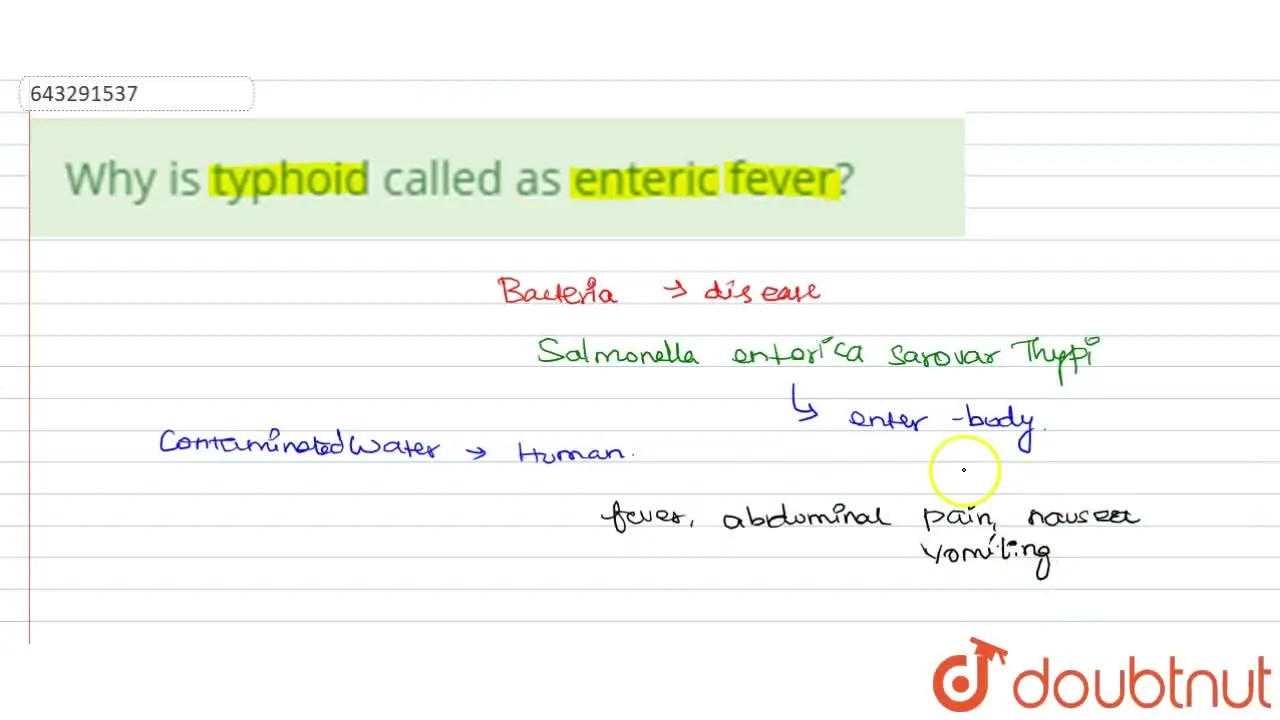 643291537
Why is typhoid called as enteric fever?
Bacteria → disease
Salmonella enterica sarovar Thyppi
↳ enter -body.
Contaminated Water → Human.
fever, abdominal pain, nausea
vomiting
doubtnut